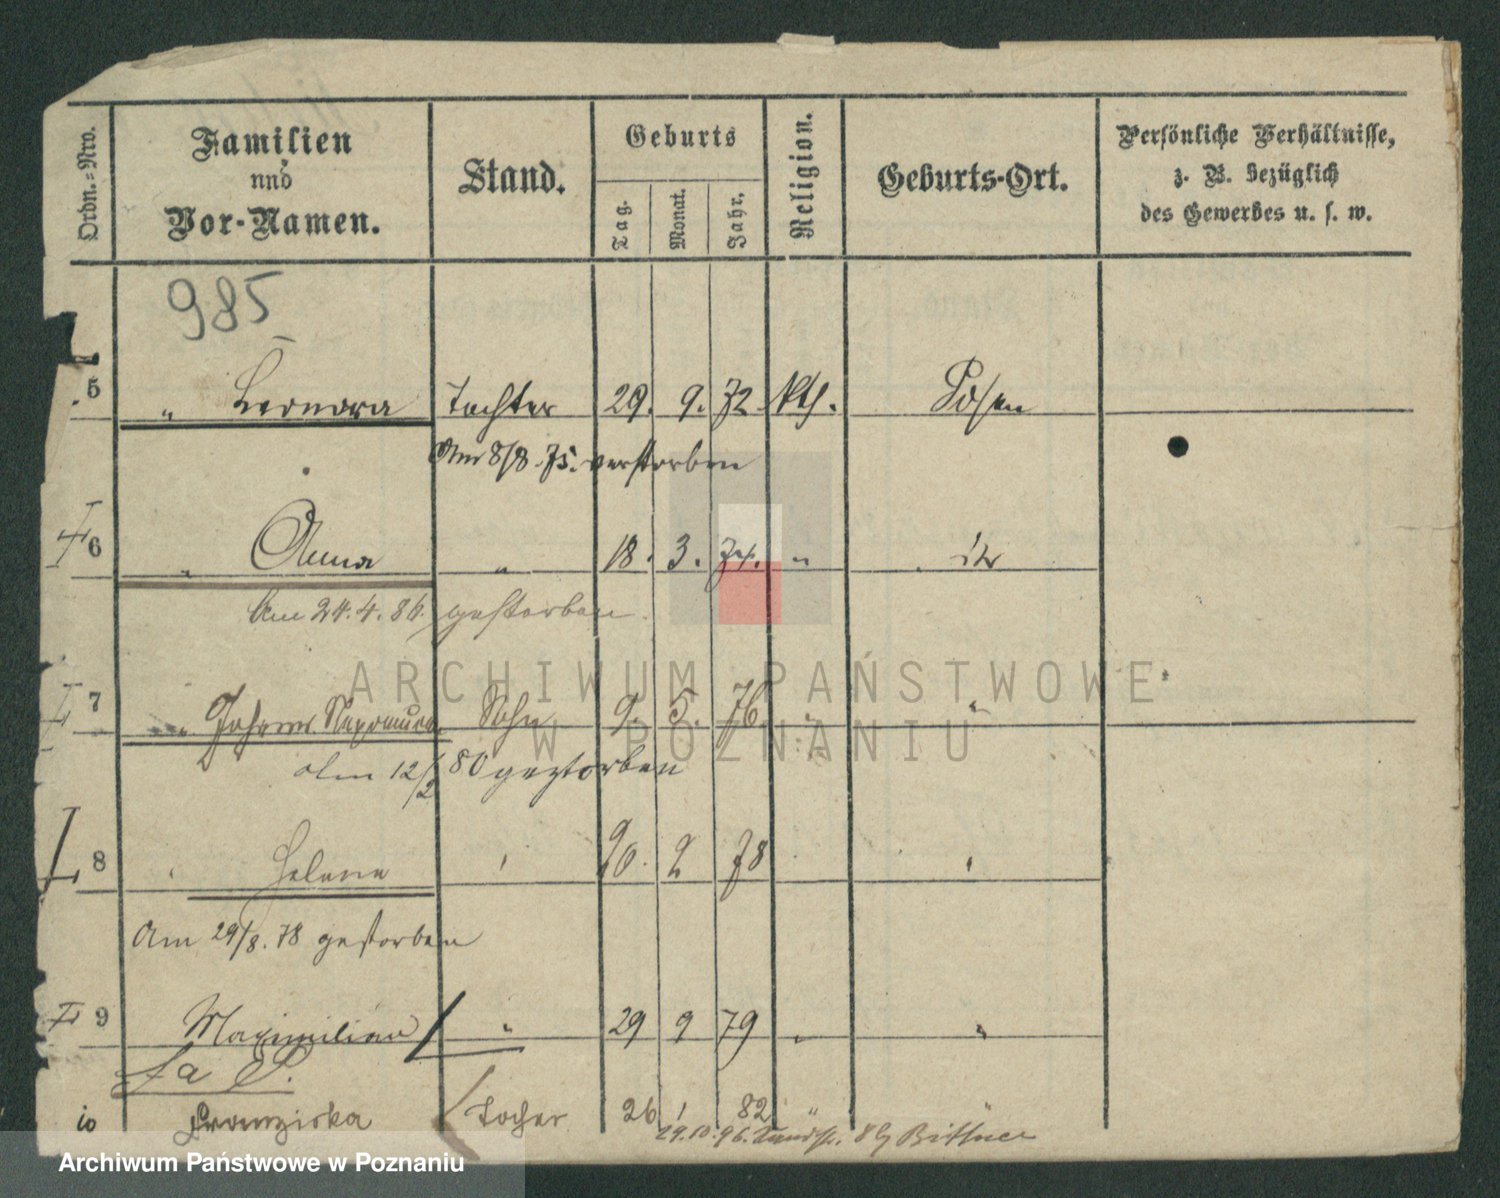 Ordn.-Nro.
Familien
und
Vor-Namen.
Stand.
Geburts
Tag.
Monat.
Jahr.
Religion.
Geburts-Ort.
Persönliche Verhältnisse,
z. B. bezüglich
des Gewerbes u. s. w.
985
5 " Leonora Tochter 29. 9. 72. kth. Posen
Am 8/8. 75. verstorben
6 " Anna " 18. 3. 74. "
Am 24. 4. 86. gestorben.
7 " Johann Nepomucen Sohn 9. 5. 76 " "
Am 12/2 80 gestorben
8 " Helene " 20. 2 78 "
Am 29/8. 78 gestorben
9 Maximilian " 29 9 79 " "
10 Franziska Tochter 26 1 82 " "
29.10.96. Bittner
ARCHIWUM PAŃSTWOWE
W POZNANIU
Archiwum Państwowe w Poznaniu